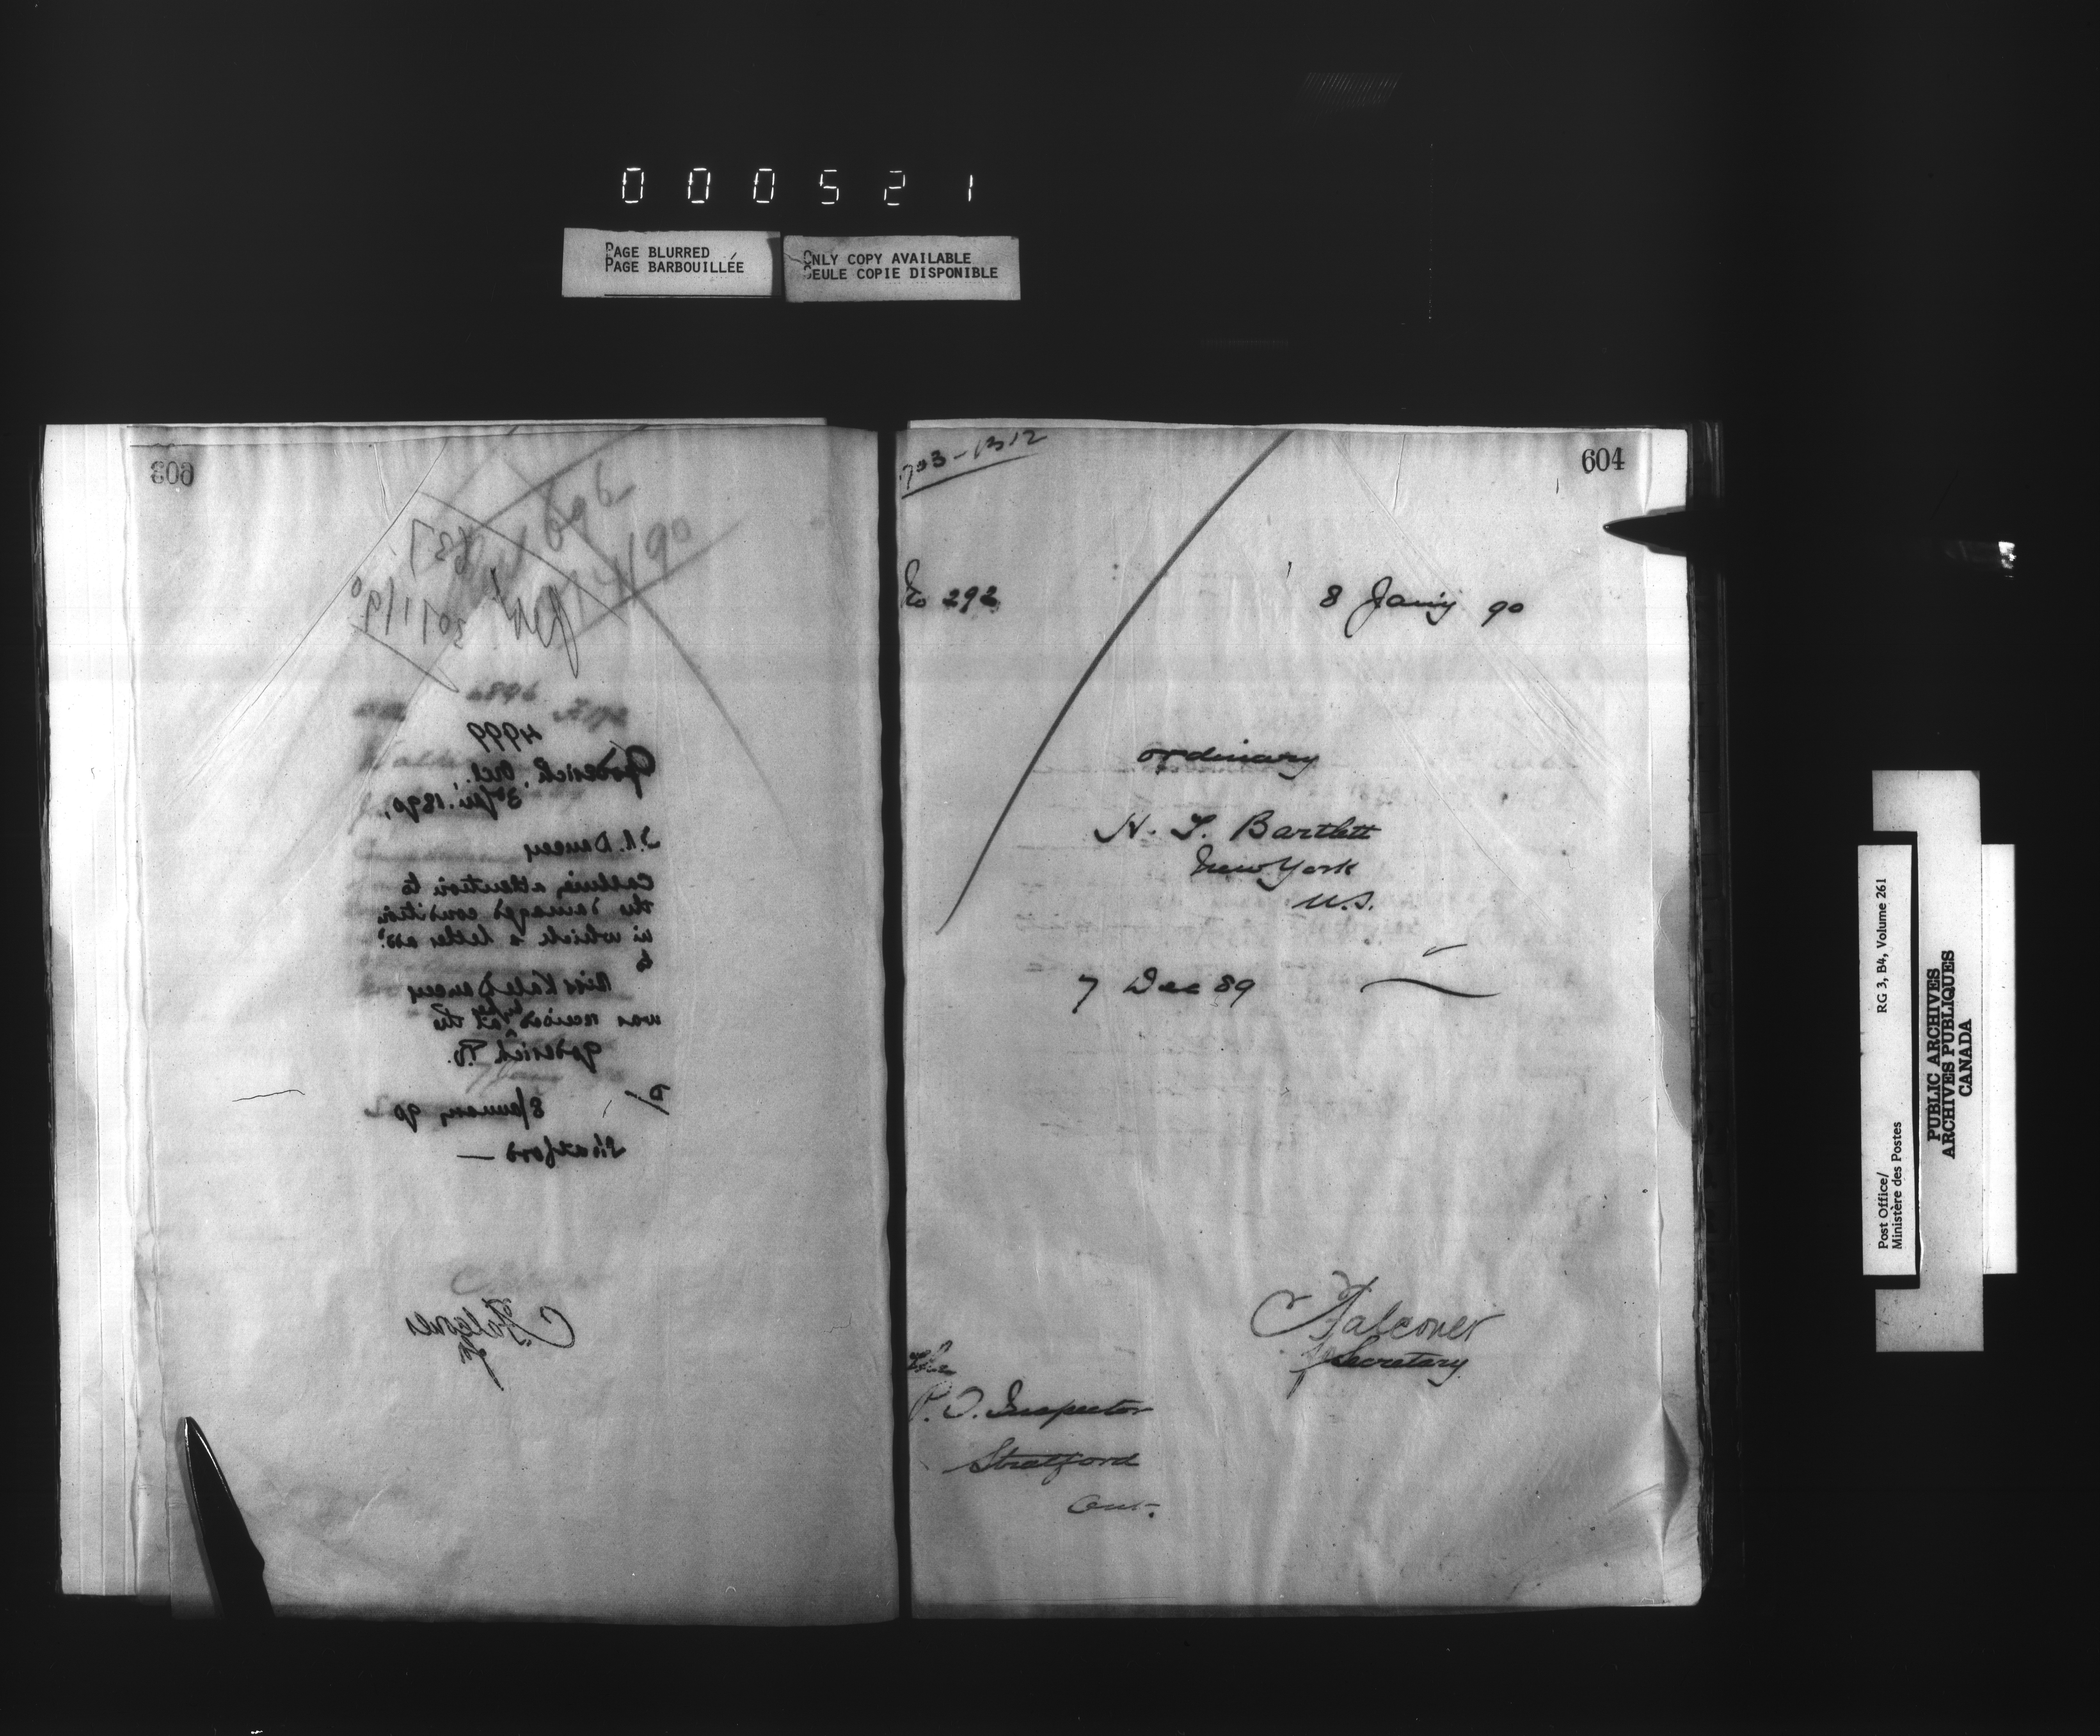 000521
PAGE BLURRED
PAGE BARBOUILLÉE
ONLY COPY AVAILABLE
SEULE COPIE DISPONIBLE
603
637
30/1/90
696
14/4/90
4999
Goderich, Ont.
3 Jan. 1890,
Dancey
calling attention to
the damaged condition
in which a letter add.
to
Miss Kate Dancey
was received at the
Goderich P.O.
8 January 90
Stratford —
Falconer
604
703-1312
No 292
8 Jany 90
ordinary
H. T. Bartlett
New York
U.S.
7 Dec 89
Falconer
Secretary
The
P. O. Inspector
Stratford
Ont.
Post Office/ RG 3, B4, Volume 261
Ministère des Postes
PUBLIC ARCHIVES
ARCHIVES PUBLIQUES
CANADA